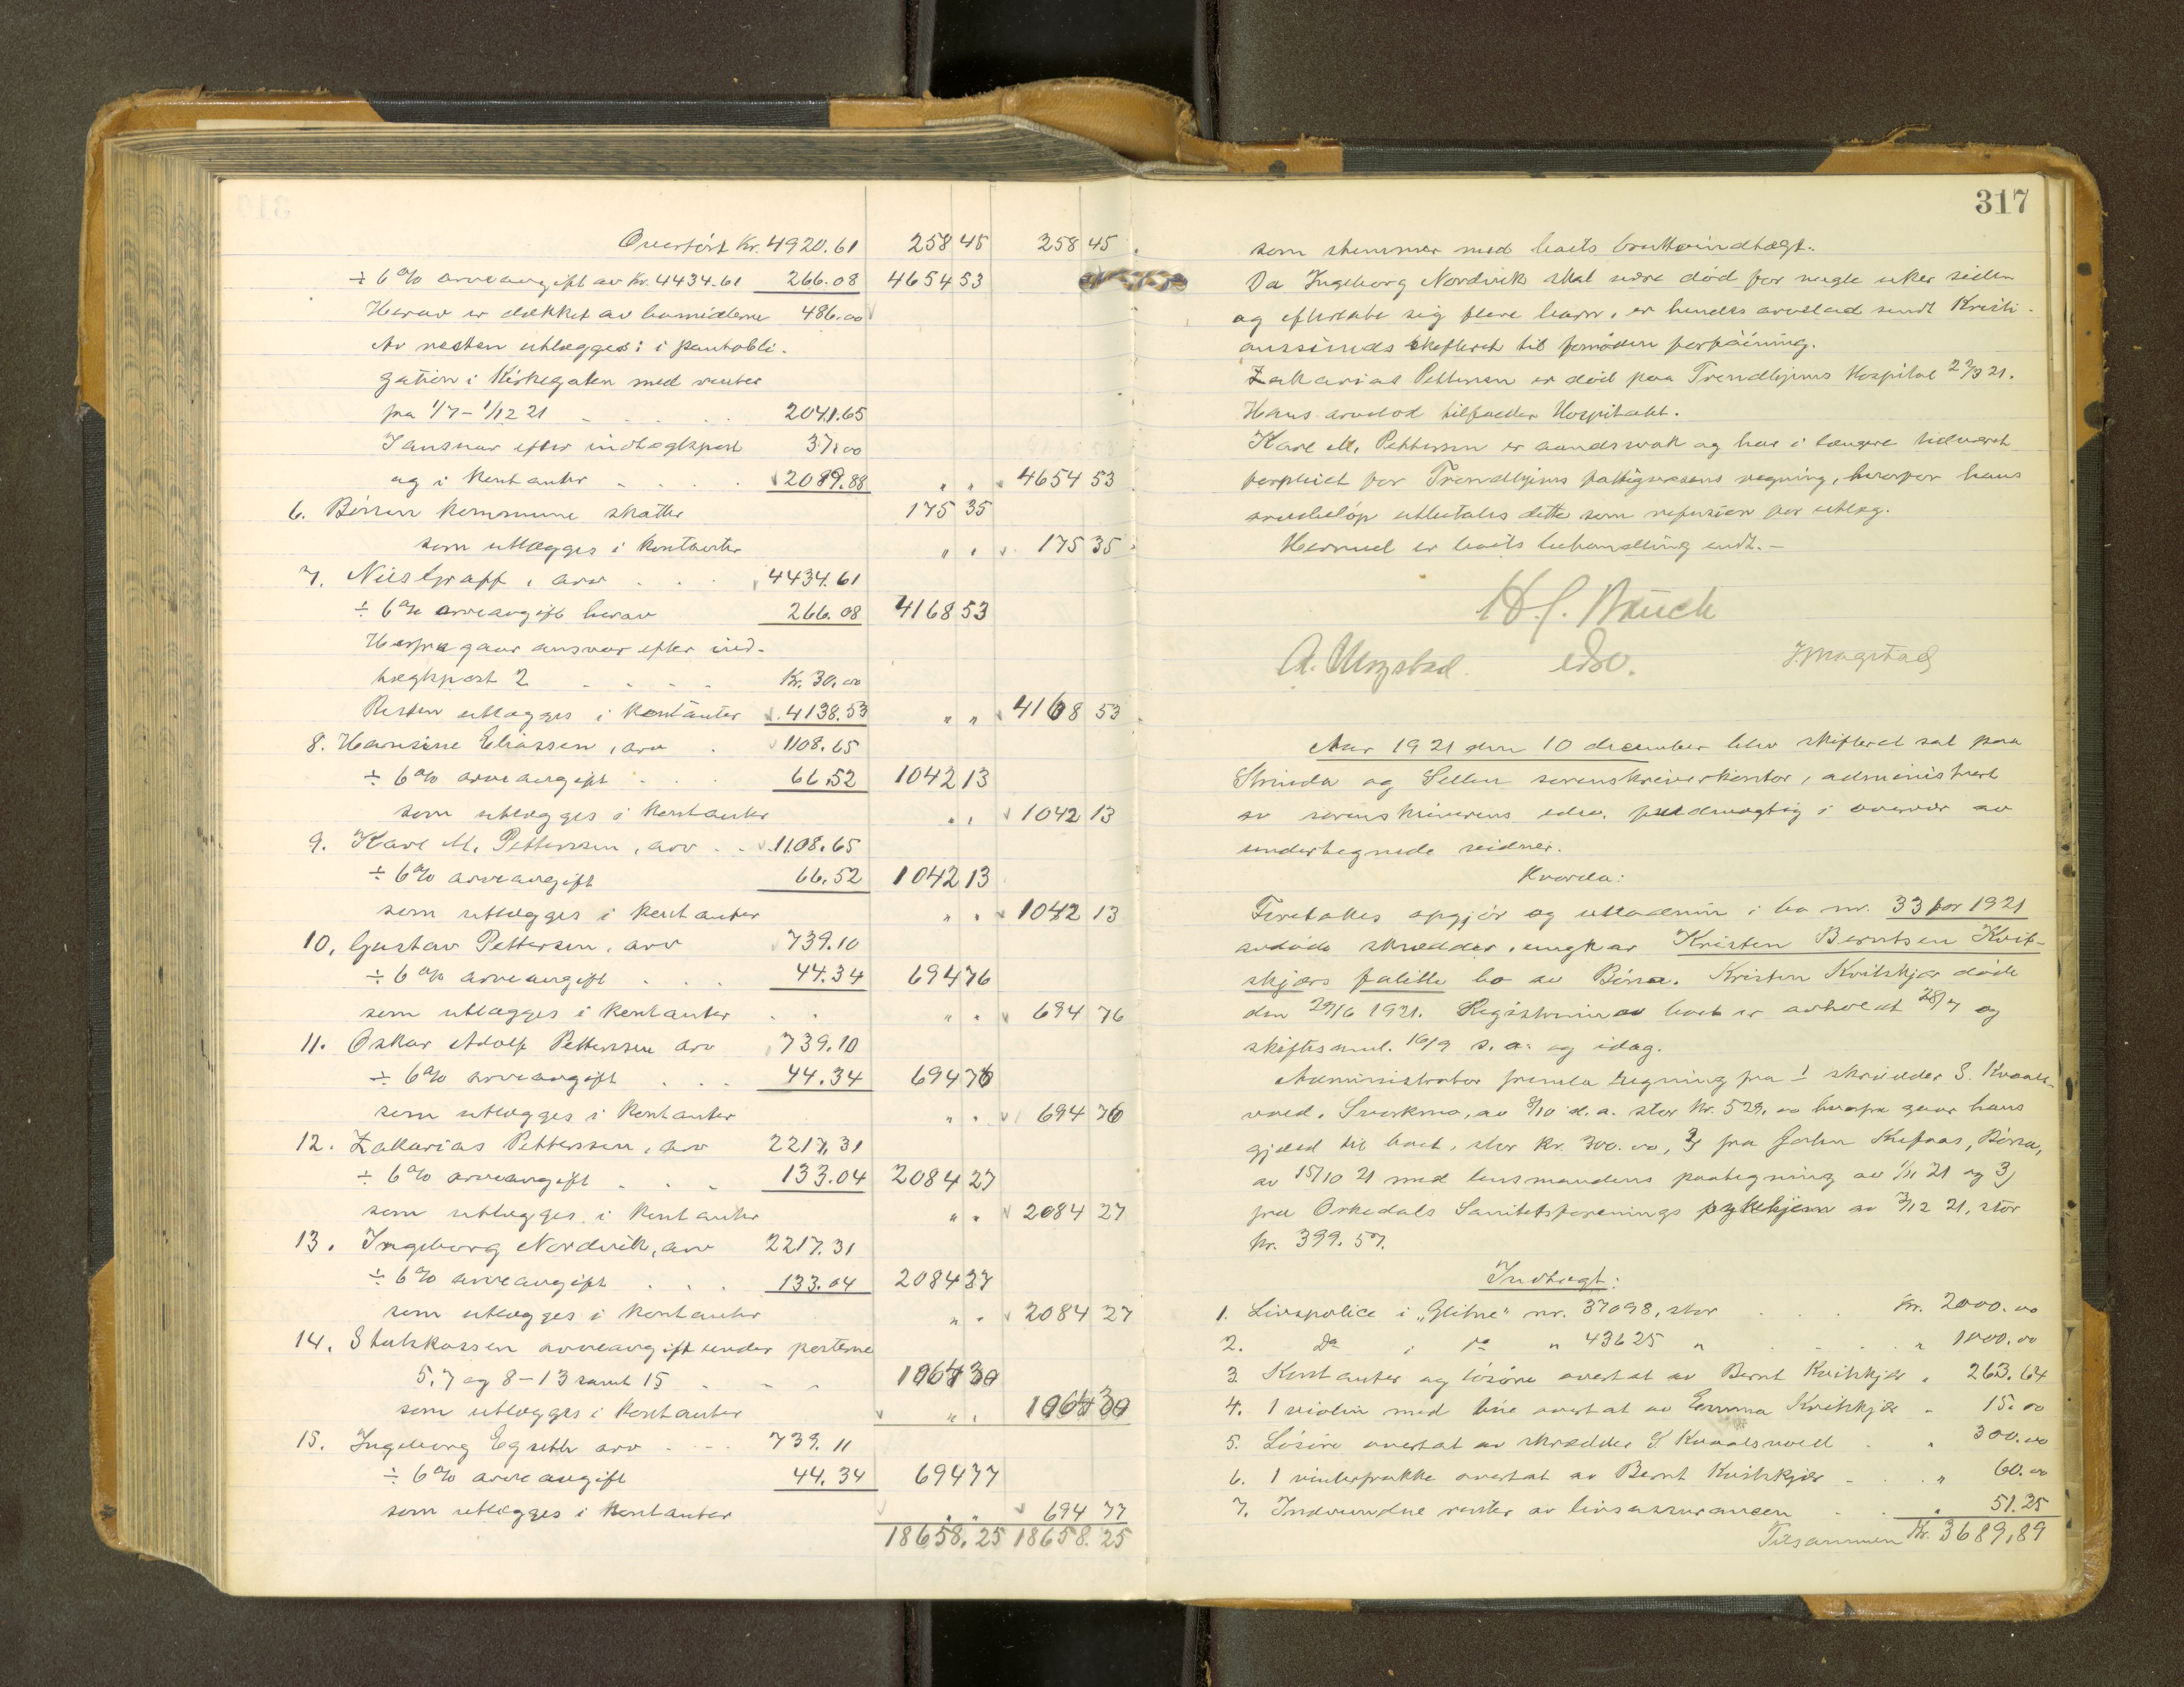 Overført Kr. 4920.61 258 45 258 45
÷ 6 % arveavgift av Kr. 4434.61 266.08 4654 53
Herav er dækket av bomidlerne 486.00
Av resten utlægges: i pantobli-
gation i Kirkegaten med renter
fra 1/7 - 1/12 21 2041.65
I ansvar efter indtægtspost 37.00
og i kontanter 2089.88 " " 4654 53
6. Börsen kommune skatter 175 35
som utlægges i kontanter " " 175 35
7. Nils Graff, arv 4434.61
÷ 6 % arveavgift herav 266.08 4168 53
Herfra gaar ansvar efter ind-
tægtspost 2 Kr. 30.00
Resten utlægges i kontanter 4138.53 " " 4168 53
8. Hansine Eliassen, arv 1108.65
÷ 6 % arveavgift 66.52 1042 13
som utlægges i kontanter " " 1042 13
9. Karl M. Pettersen, arv 1108.65
÷ 6 % arveavgift 66.52 1042 13
som utlægges i kontanter " " 1042 13
10. Gustav Pettersen, arv 739.10
÷ 6 % arveavgift 44.34 694 76
som utlægges i kontanter " " 694 76
11. Oskar Adolf Pettersen arv 739.10
÷ 6 % arveavgift 44.34 694 76
som utlægges i kontanter " " 694 76
12. Zakarias Pettersen, arv 2217.31
÷ 6 % arveavgift 133.04 2084 27
som utlægges i kontanter " " 2084 27
13. Ingeborg Nordvik, arv 2217.31
÷ 6 % arveavgift 133.04 2084 27
som utlægges i kontanter " " 2084 27
14. Statskassen arveavgift under posterne
5, 7 og 8-13 samt 15 1064 30
som utlægges i kontanter " " 1064 30
15. Ingeborg Egseth arv 739.11
÷ 6 % arveavgift 44.34 694 77
som utlægges i kontanter " " 694 77
18658.25 18658.25
317
som stemmer med boets bruttoindtægt.
Da Ingeborg Nordvik skal være död for nogle uker siden
og efterlate sig flere barn, er hendes arvelod sendt Kristi-
anssunds skifteret til fornöden forføining.
Zakarias Pettersen er död paa Trondhjems Hospital 22/3 21.
Hans arvelod tilfalder Hospitalet.
Karl M. Pettersen er aandssvak og har i længere tid været
forpleiet for Trondhjems fattigvæsens regning, hvorfor hans
arvebeløp utbetales dette som refusion for utlæg.
Hermed er boets behandling endt. —
A. Ulvgstad edsv. J. Magstad
Aar 1921 den 10 december blev skifteret sat paa
Strinda og Selbu sorenskriverkontor, administrert
av sorenskriverens edsv. fuldmægtig i overvær av
undertegnede vidner.
Hvorda:
Foretokes opgjör og utlodning i bo nr. 33 for 1921
avdöde skrædder, ungkar Kristen Berntsen Kvit-
skjærs fallitte bo av Börsa. Kristen Kvitskjær döde
den 29/6 1921. Registrering av boet er avholdt 28/7 og
skiftesaml. 16/9 s. a. og idag.
Administrator fremla regning fra 1 skrædder S. Kvaals-
vold, Svorkmo, av 8/10 d. a. stor Kr. 529.00 hvorfra gaar hans
gjæld til boet, stor kr. 300.00, 2) fra John Kufaas, Börsa,
av 15/10 21 med lensmandens paategning av 1/11 21 og 3)
fra Orkedals Sanitetsforenings sykehjem av 3/12 21, stor
kr. 399.57.
Indtægt:
1. Livspolice i „Glitne" nr. 37098, stor Kr. 2000.00
2. do i do " 43625 " " 1000.00
3. Kontanter og lösöre overtat av Bernt Kvitskjær " 263.64
4. 1 violin med bue overtat av Emma Kvitskjær " 15.00
5. Lösöre overtat av skrædder S Kvaalsvold " 300.00
6. 1 vinterfrakke overtat av Bernt Kvitskjær " 60.00
7. Indvundne renter av livsassurancen " 51.25
Tilsammen Kr. 3689,89